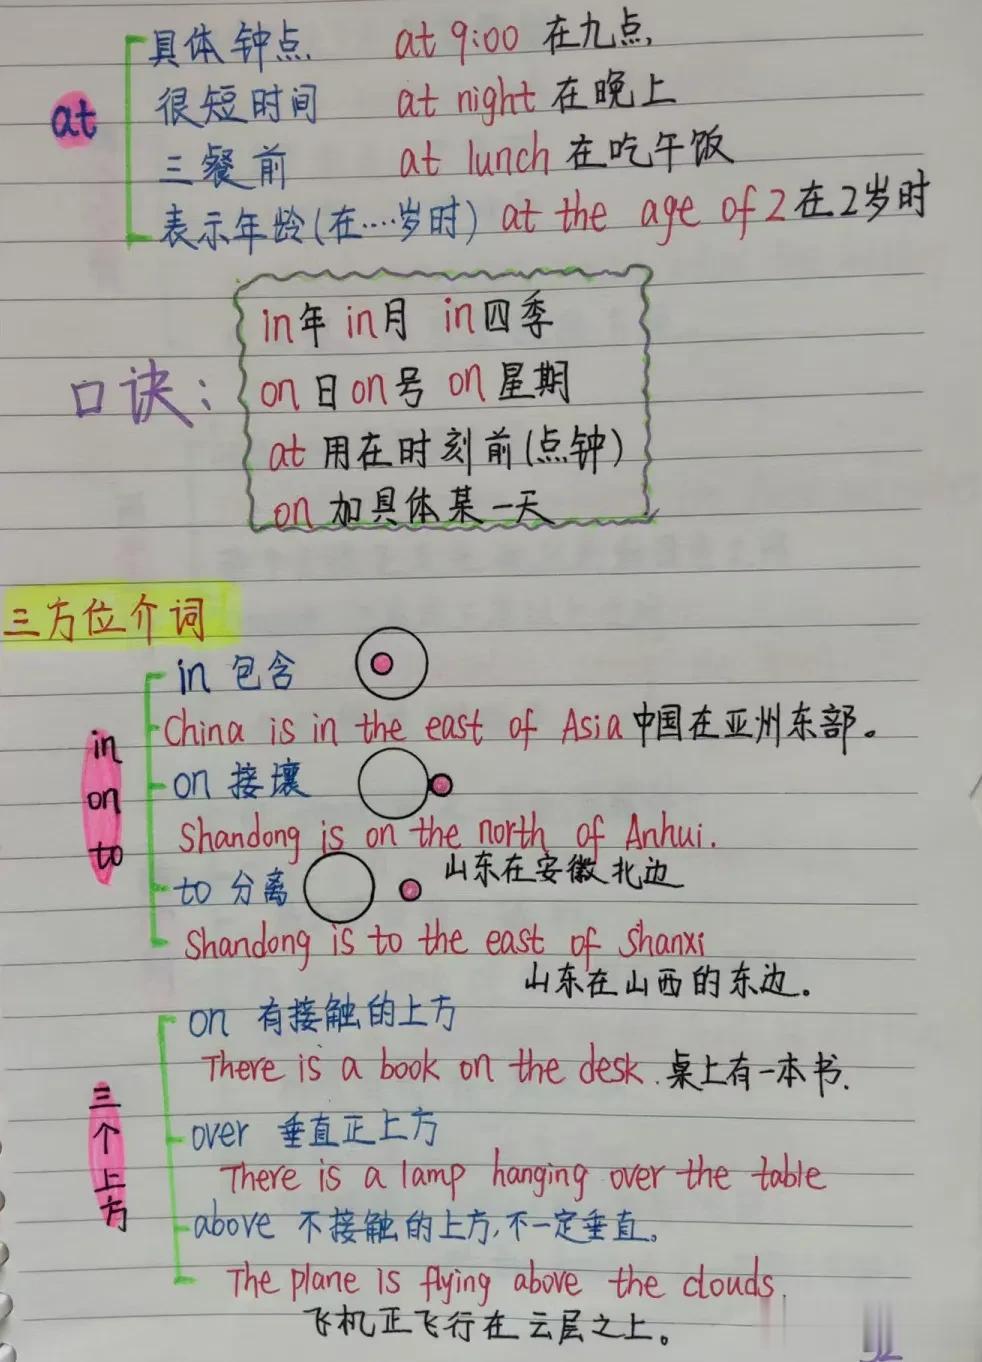 at
具体钟点. at 9:00 在九点,
很短时间 at night 在晚上
三餐前 at lunch 在吃午饭
表示年龄(在....岁时) at the age of 2 在2岁时
口诀:
in年 in月 in四季
on日 on号 on星期
at用在时刻前(点钟)
on加具体某一天
三方位介词
in
on
to
in 包含
China is in the east of Asia 中国在亚洲东部。
on 接壤
Shandong is on the north of Anhui.
山东在安徽北边
to 分离
Shandong is to the east of Shanxi
山东在山西的东边。
三个上方
on 有接触的上方
There is a book on the desk. 桌上有一本书.
over 垂直正上方
There is a lamp hanging over the table
above 不接触的上方,不一定垂直。
The plane is flying above the clouds.
飞机正飞行在云层之上。